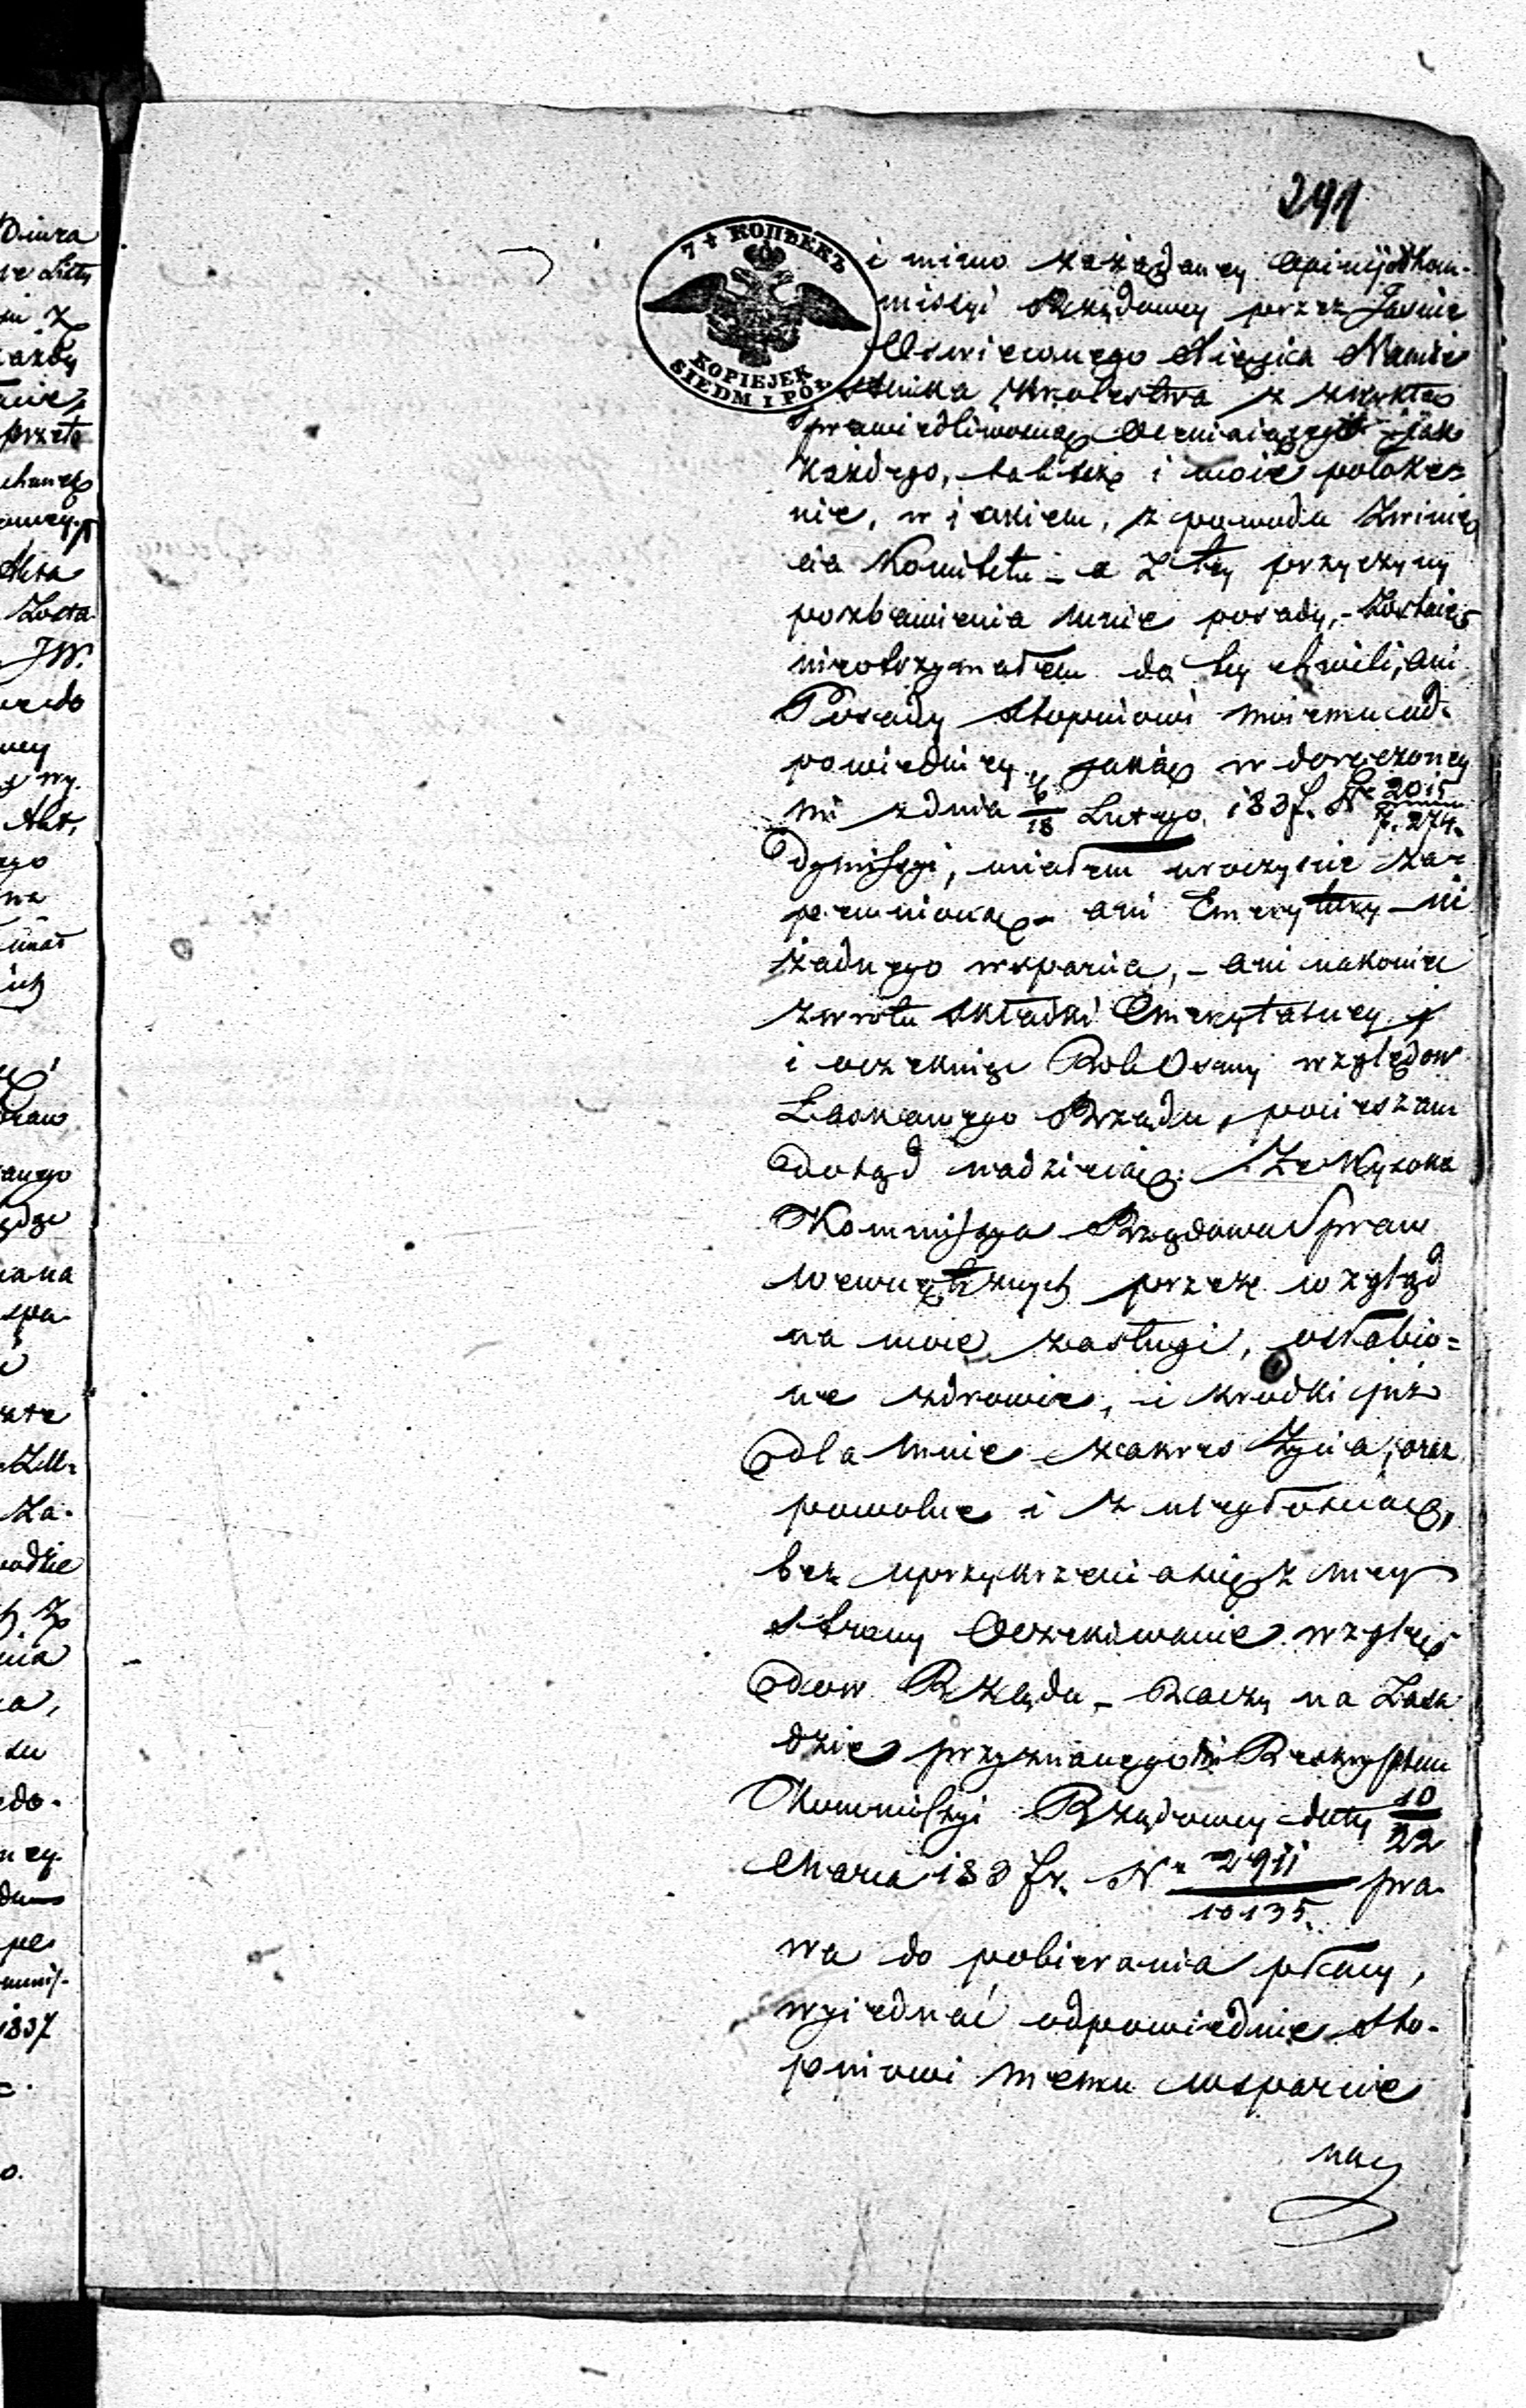 291
7½ КОПѢЕКЪ
KOPIEJEK
SIEDM I POŁ
i mimo zażądaney Opinij od Kom-
missyi Rządowey przez Jaśnie
Oswieconego Xięcia Namie
stnika Krolestwa z zwykłą
sprawiedliwoscią Oceniaiącego jak
każdego, tak też i moie położe-
nie, w iakiem, z powodu Zwinię
cia Komitetu - a z tey przyczyny
pozbawienia mnie posady, - Zostaię
nieotrzymałem do tey chwili, ani
Posady stopniowi moiemu od-
powiedniey, jaką w doręczoney
mi z dnia 6/18 Lutego 1837. Nr 2015/p. 274.
dymissyi, miałem uroczyscie za-
pewnioną - ani Emerytury - ni
żadnego wsparcia, - ani nakoniec
zwrotu składki Emerytalney
i oczekuiąc Rok Osmy względow
Łaskawego Rządu, pocieszam
dotąd nadzieią: Ze Wysoka
Kommissya Rządowa Spraw
Wewnętrznych przez wzgląd
na moie zasługi, osłabio=
ne zdrowie, i krodki już
dla mnie zakres Życia, oraz
powolne i z uległoscią,
bez uprzykrzenia się z mey
strony Oczekiwanie wzglę
dow Rządu, - Raczy na Zasa
dzie przyznanego mi Reskryptem
Kommissyi Rządowey daty 10/22
Marca 1837 r. Nr 2911/10135. pra-
wa do pobierania płacy,
wyiednać odpowiednie sto-
pniowi memu wsparcie